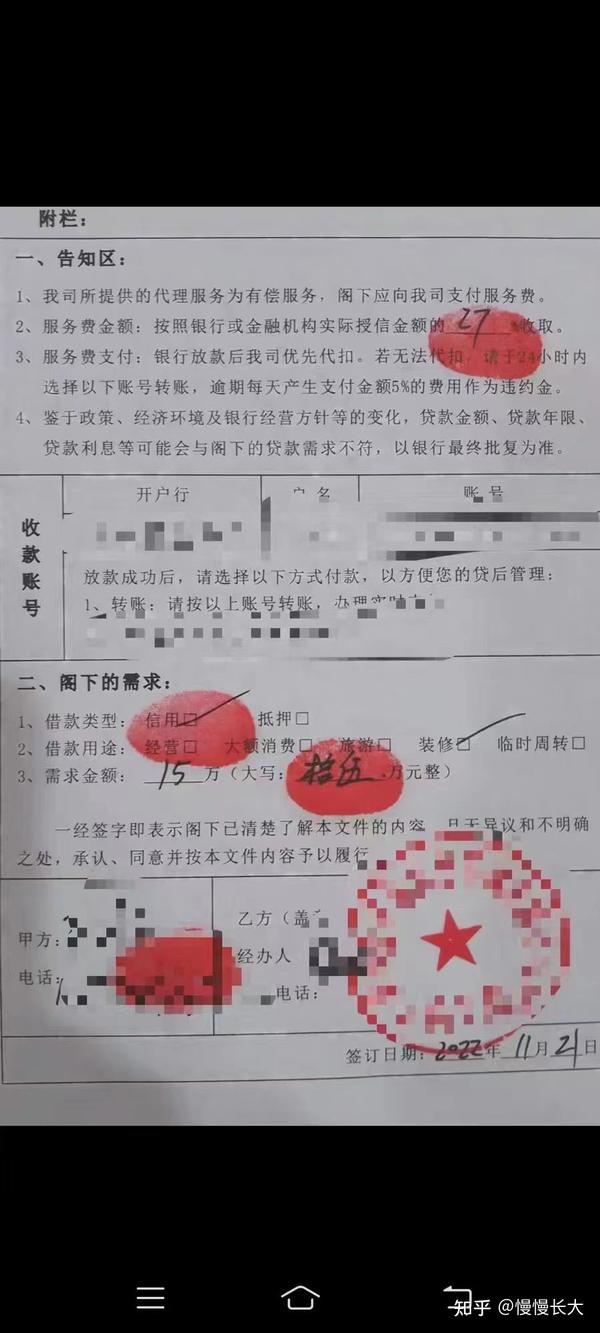 附栏：
一、告知区：
1、我司所提供的代理服务为有偿服务，阁下应向我司支付服务费。
2、服务费金额：按照银行或金融机构实际授信金额的 27 %收取。
3、服务费支付：银行放款后我司优先代扣。若无法代扣，请于24小时内
选择以下账号转账，逾期每天产生支付金额5%的费用作为违约金。
4、鉴于政策、经济环境及银行经营方针等的变化，贷款金额、贷款年限、
贷款利息等可能会与阁下的贷款需求不符，以银行最终批复为准。
收款账号
开户行 户名 账号
放款成功后，请选择以下方式付款，以方便您的贷后管理：
1、转账：请按以上账号转账，办理实时
二、阁下的需求：
1、借款类型： 信用□ 抵押□
2、借款用途： 经营□ 大额消费□ 旅游□ 装修□ 临时周转□
3、需求金额： 15 万（大写： 拾伍 万元整）
一经签字即表示阁下已清楚了解本文件的内容，且无异议和不明确
之处，承认、同意并按本文件内容予以履行
甲方： 乙方（盖
电话： 经办人
电话：
签订日期：2022年 11月 21日
知乎 @慢慢长大